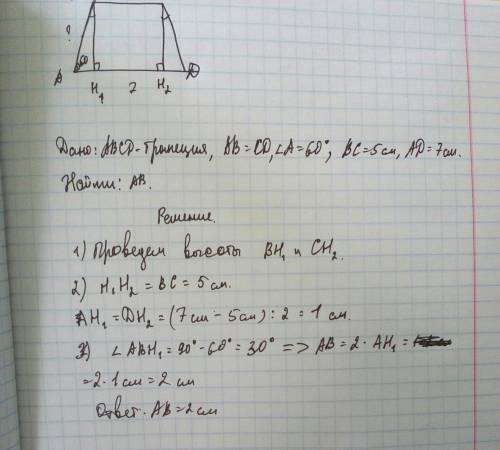 ?
A 60 D
H₁ 7 H₂
Дано: ABCD - трапеция, AB = CD, ∠A = 60°, BC = 5 см, AD = 7 см.
Найти: AB.
Решение.
1) Проведем высоты BH₁ и CH₂.
2) H₁H₂ = BC = 5 см.
AH₁ = DH₂ = (7 см - 5 см) : 2 = 1 см.
3) ∠ABH₁ = 90° - 60° = 30° => AB = 2 · AH₁ =
= 2 · 1 см = 2 см
Ответ. AB = 2 см